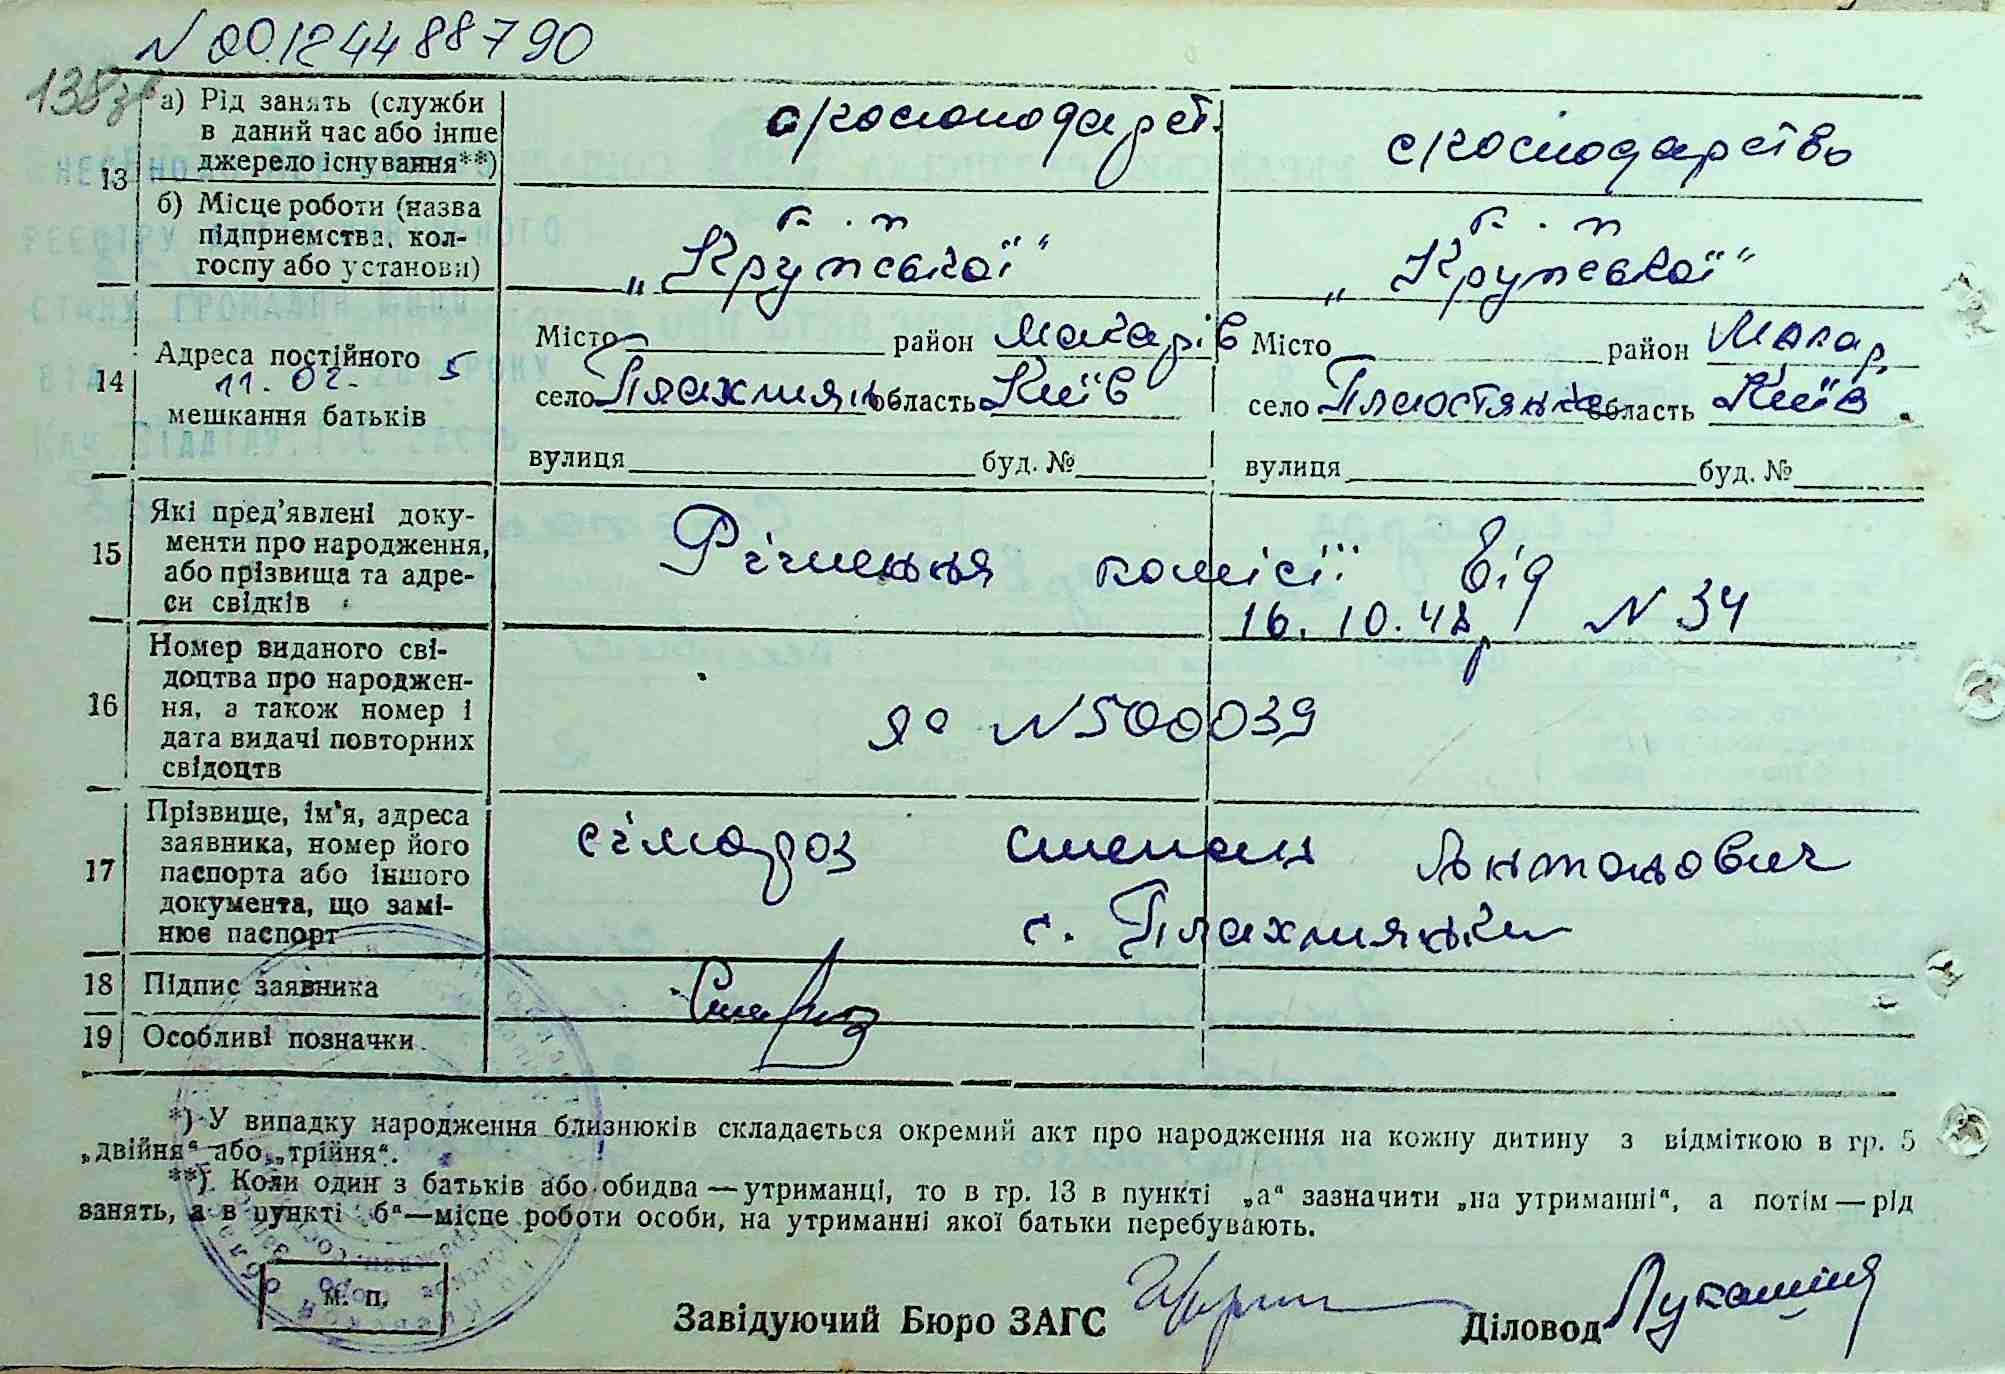 N 00124488790
138зв
13
а) Рід занять (служби
в даний час або інше
джерело існування**)
с/косподарст.
с/косподарство
б) Місце роботи (назва
підприємства, кол-
госпу або установи)
к-п
„Крупської"
к-п
„Крупської"
14
Адреса постійного
11.02. 5
мешкання батьків
Місто район Макарів
село Плахтянк область Київ
вулиця буд. №
Місто район Макар
село область Київ.
вулиця буд. №
15
Які пред'явлені доку-
менти про народження,
або прізвища та адре-
си свідків
Рішення комісії від
16. 10. 48 р N 34
16
Номер виданого сві-
доцтва про народжен-
ня, а також номер і
дата видачі повторних
свідоцтв
N 500039
17
Прізвище, ім'я, адреса
заявника, номер його
паспорта або іншого
документа, що замі-
нює паспорт
Сімароз Степан Антонович
с. Плахтянки
18
Підпис заявника
19
Особливі позначки
*) У випадку народження близнюків складається окремий акт про народження на кожну дитину з відміткою в гр. 5
„двійня" або „трійня".
**) Коли один з батьків або обидва — утриманці, то в гр. 13 в пункті „а" зазначити „на утриманні", а потім — рід
занять, а в пункті „б" — місце роботи особи, на утриманні якої батьки перебувають.
м. п.
Завідуючий Бюро ЗАГС
Діловод